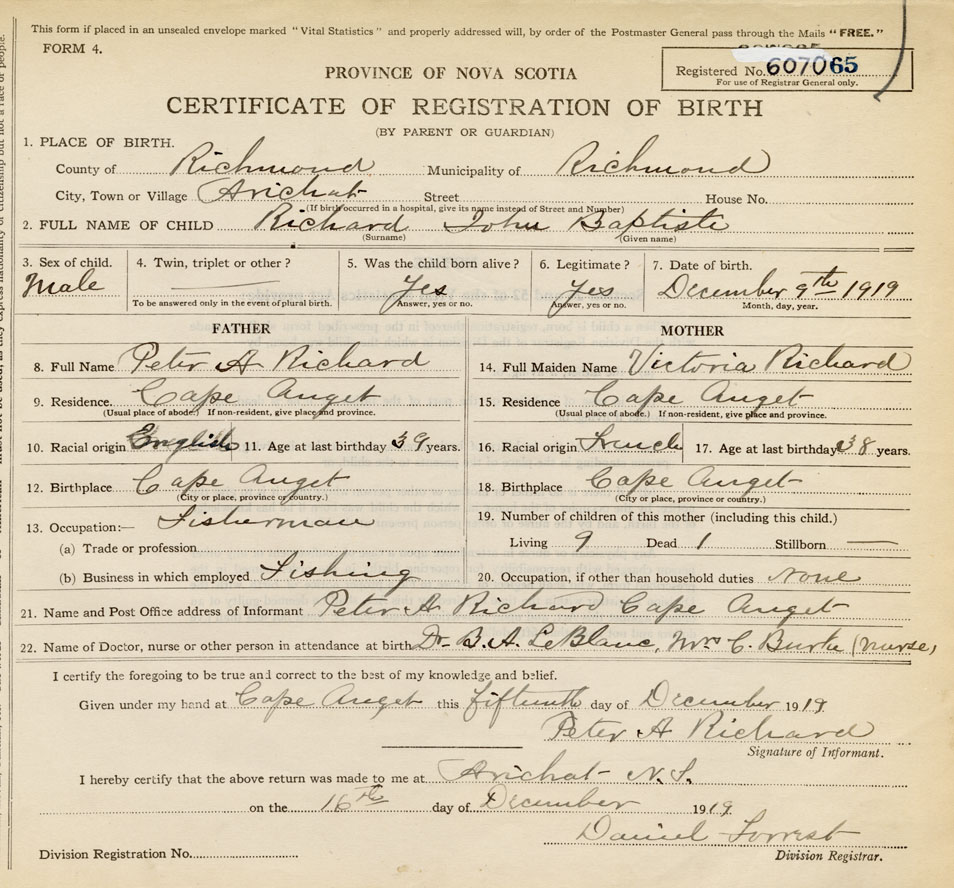 This form if placed in an unsealed envelope marked "Vital Statistics" and properly addressed will, by order of the Postmaster General pass through the Mails "FREE."
FORM 4.
Registered No. 607065
For use of Registrar General only.
PROVINCE OF NOVA SCOTIA
CERTIFICATE OF REGISTRATION OF BIRTH
(BY PARENT OR GUARDIAN)
1. PLACE OF BIRTH.
County of Richmond Municipality of Richmond
City, Town or Village Arichat Street House No.
(If birth occurred in a hospital, give its name instead of Street and Number)
2. FULL NAME OF CHILD Richard John Baptiste
(Surname) (Given name)
3. Sex of child. 4. Twin, triplet or other? 5. Was the child born alive? 6. Legitimate? 7. Date of birth.
Male Yes Yes December 9th 1919
To be answered only in the event of plural birth. Answer, yes or no. Answer, yes or no. Month, day, year.
FATHER MOTHER
8. Full Name Peter A Richard 14. Full Maiden Name Victoria Richard
9. Residence. Cape Auget 15. Residence Cape Auget
(Usual place of abode.) If non-resident, give place and province. (Usual place of abode.) If non-resident, give place and province.
10. Racial origin English 11. Age at last birthday 39 years. 16. Racial origin French 17. Age at last birthday 38 years.
12. Birthplace Cape Auget 18. Birthplace Cape Auget
(City or place, province or country.) (City or place, province or country.)
13. Occupation:— Fisherman 19. Number of children of this mother (including this child.)
(a) Trade or profession Living 9 Dead 1 Stillborn —
(b) Business in which employed Fishing 20. Occupation, if other than household duties None
21. Name and Post Office address of Informant Peter A Richard Cape Auget
22. Name of Doctor, nurse or other person in attendance at birth Dr. B. A. LeBlanc, Mrs C. Burke (nurse)
I certify the foregoing to be true and correct to the best of my knowledge and belief.
Given under my hand at Cape Auget this fifteenth day of December 1919
Peter A Richard
Signature of Informant.
I hereby certify that the above return was made to me at Arichat N.S.
on the 16th day of December 1919.
Daniel Forrest
Division Registrar.
Division Registration No.